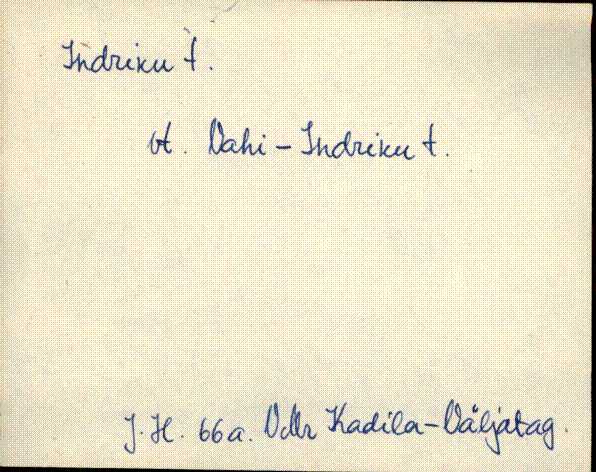 Indriku t.
vt. Vahi-Indriku t.
J. H. 66a. VMr Kadila-Väljatag.